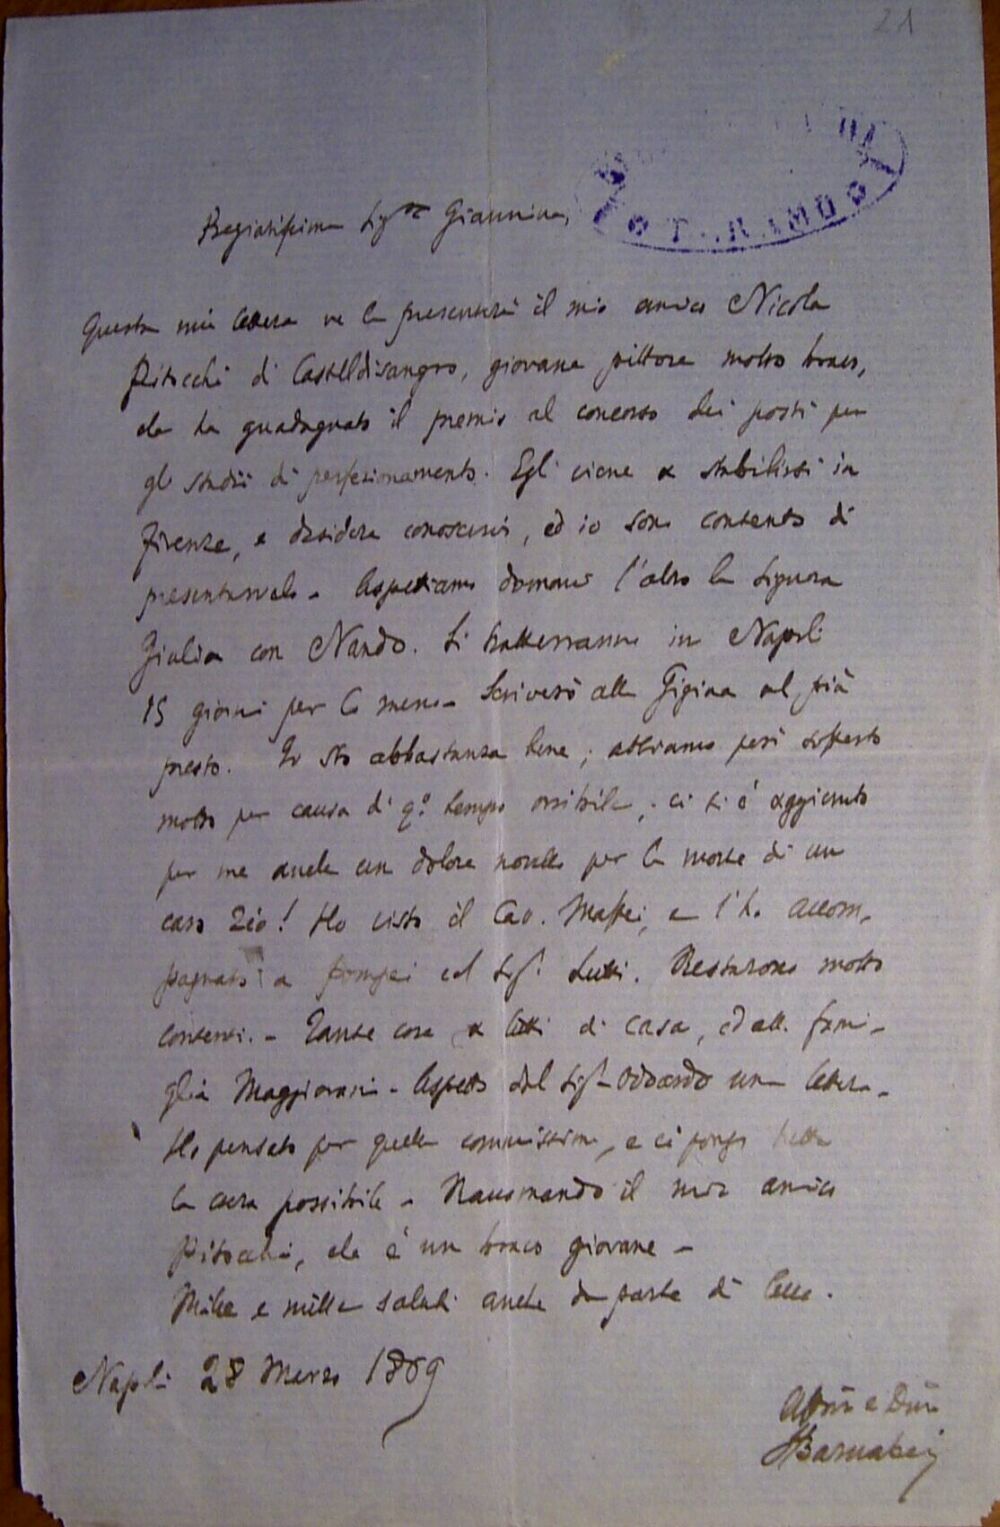 21
TERAMO
Pregiatissima Sig.ra Giannina,
Questa mia lettera ve la presenterà il mio amico Nicola
Pitocchi di Casteldisangro, giovane pittore molto bravo,
che ha guadagnato il premio al concorso dei posti per
gli studii di perfezionamento. Egli viene a stabilirsi in
Firenze, e desidera conoscervi, ed io sono contento di
presentarvelo - Aspettiamo domani l'altro la Signora
Giulia con Nando. Si tratterranno in Napoli
15 giorni per lo meno - Scriverò alla Gigina al più
presto. Io sto abbastanza bene, abbiamo però sofferto
molto per causa di q.o tempo orribile, ci si è aggiunto
per me anche un dolore novello per la morte di un
caro Zio! Ho visto il Cav. Maffei, e l'ho accom-
pagnato a Pompei col Sig. Lutti. Restarono molto
contenti. - Tante cose a tutti di casa, ed alla fami-
glia Maggiorani - Aspetto dal Sig.r Odoardo una lettera -
Ho pensato per quella commissione, e ci pongo tutta
la cura possibile - Raccomando il mio amico
Pitocchi, che è un bravo giovane -
Mille e mille saluti anche da parte di
Napoli 28 Marzo 1869
FBarnabei